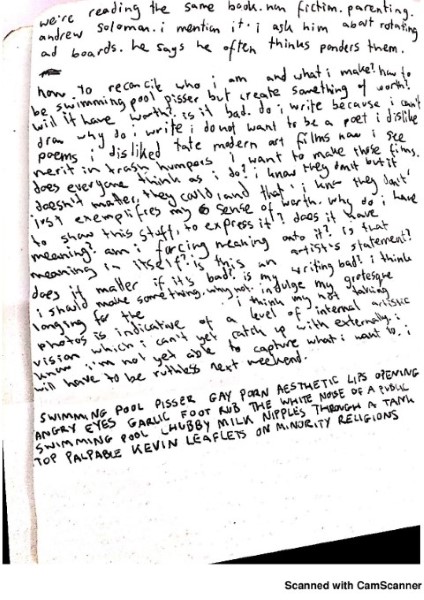 we're reading the same book. non fiction. parenting.
andrew solomon. i mention it. i ask him about rotating
ad boards. he says he often thinks ponders them.
how to reconcile who i am and what i make? how to
be swimming pool pisser but create something of worth?
will it have worth? is it bad. do i write because i can't
draw why do i write i do not want to be a poet i dislike
poems i disliked tate modern art films now i see
merit in trash humpers i want to make those films.
does everyone think as i do? i know they don't but it
doesn't matter, they could, and that i know they don't
just exemplifies my sense of worth. why do i have
to show this stuff, to express it? does it have
meaning? am i forcing meaning onto it? is that
meaning in itself? is this an artist's statement?
does it matter if it's bad? is my writing bad? i think
i should make something. why not. indulge my grotesque
longing for the i think my not taking
photos is indicative of a level of internal artistic
vision which i can't yet catch up with externally. i
know i'm not yet able to capture what i want to. i
will have to be ruthless next weekend.
SWIMMING POOL PISSER GAY PORN AESTHETIC LIPS OPENING
ANGRY EYES GARLIC FOOT RUB THE WHITE NOISE OF A PUBLIC
SWIMMING POOL CHUBBY MILK NIPPLES THROUGH A TANK
TOP PALPABLE KEVIN LEAFLETS ON MINORITY RELIGIONS
Scanned with CamScanner